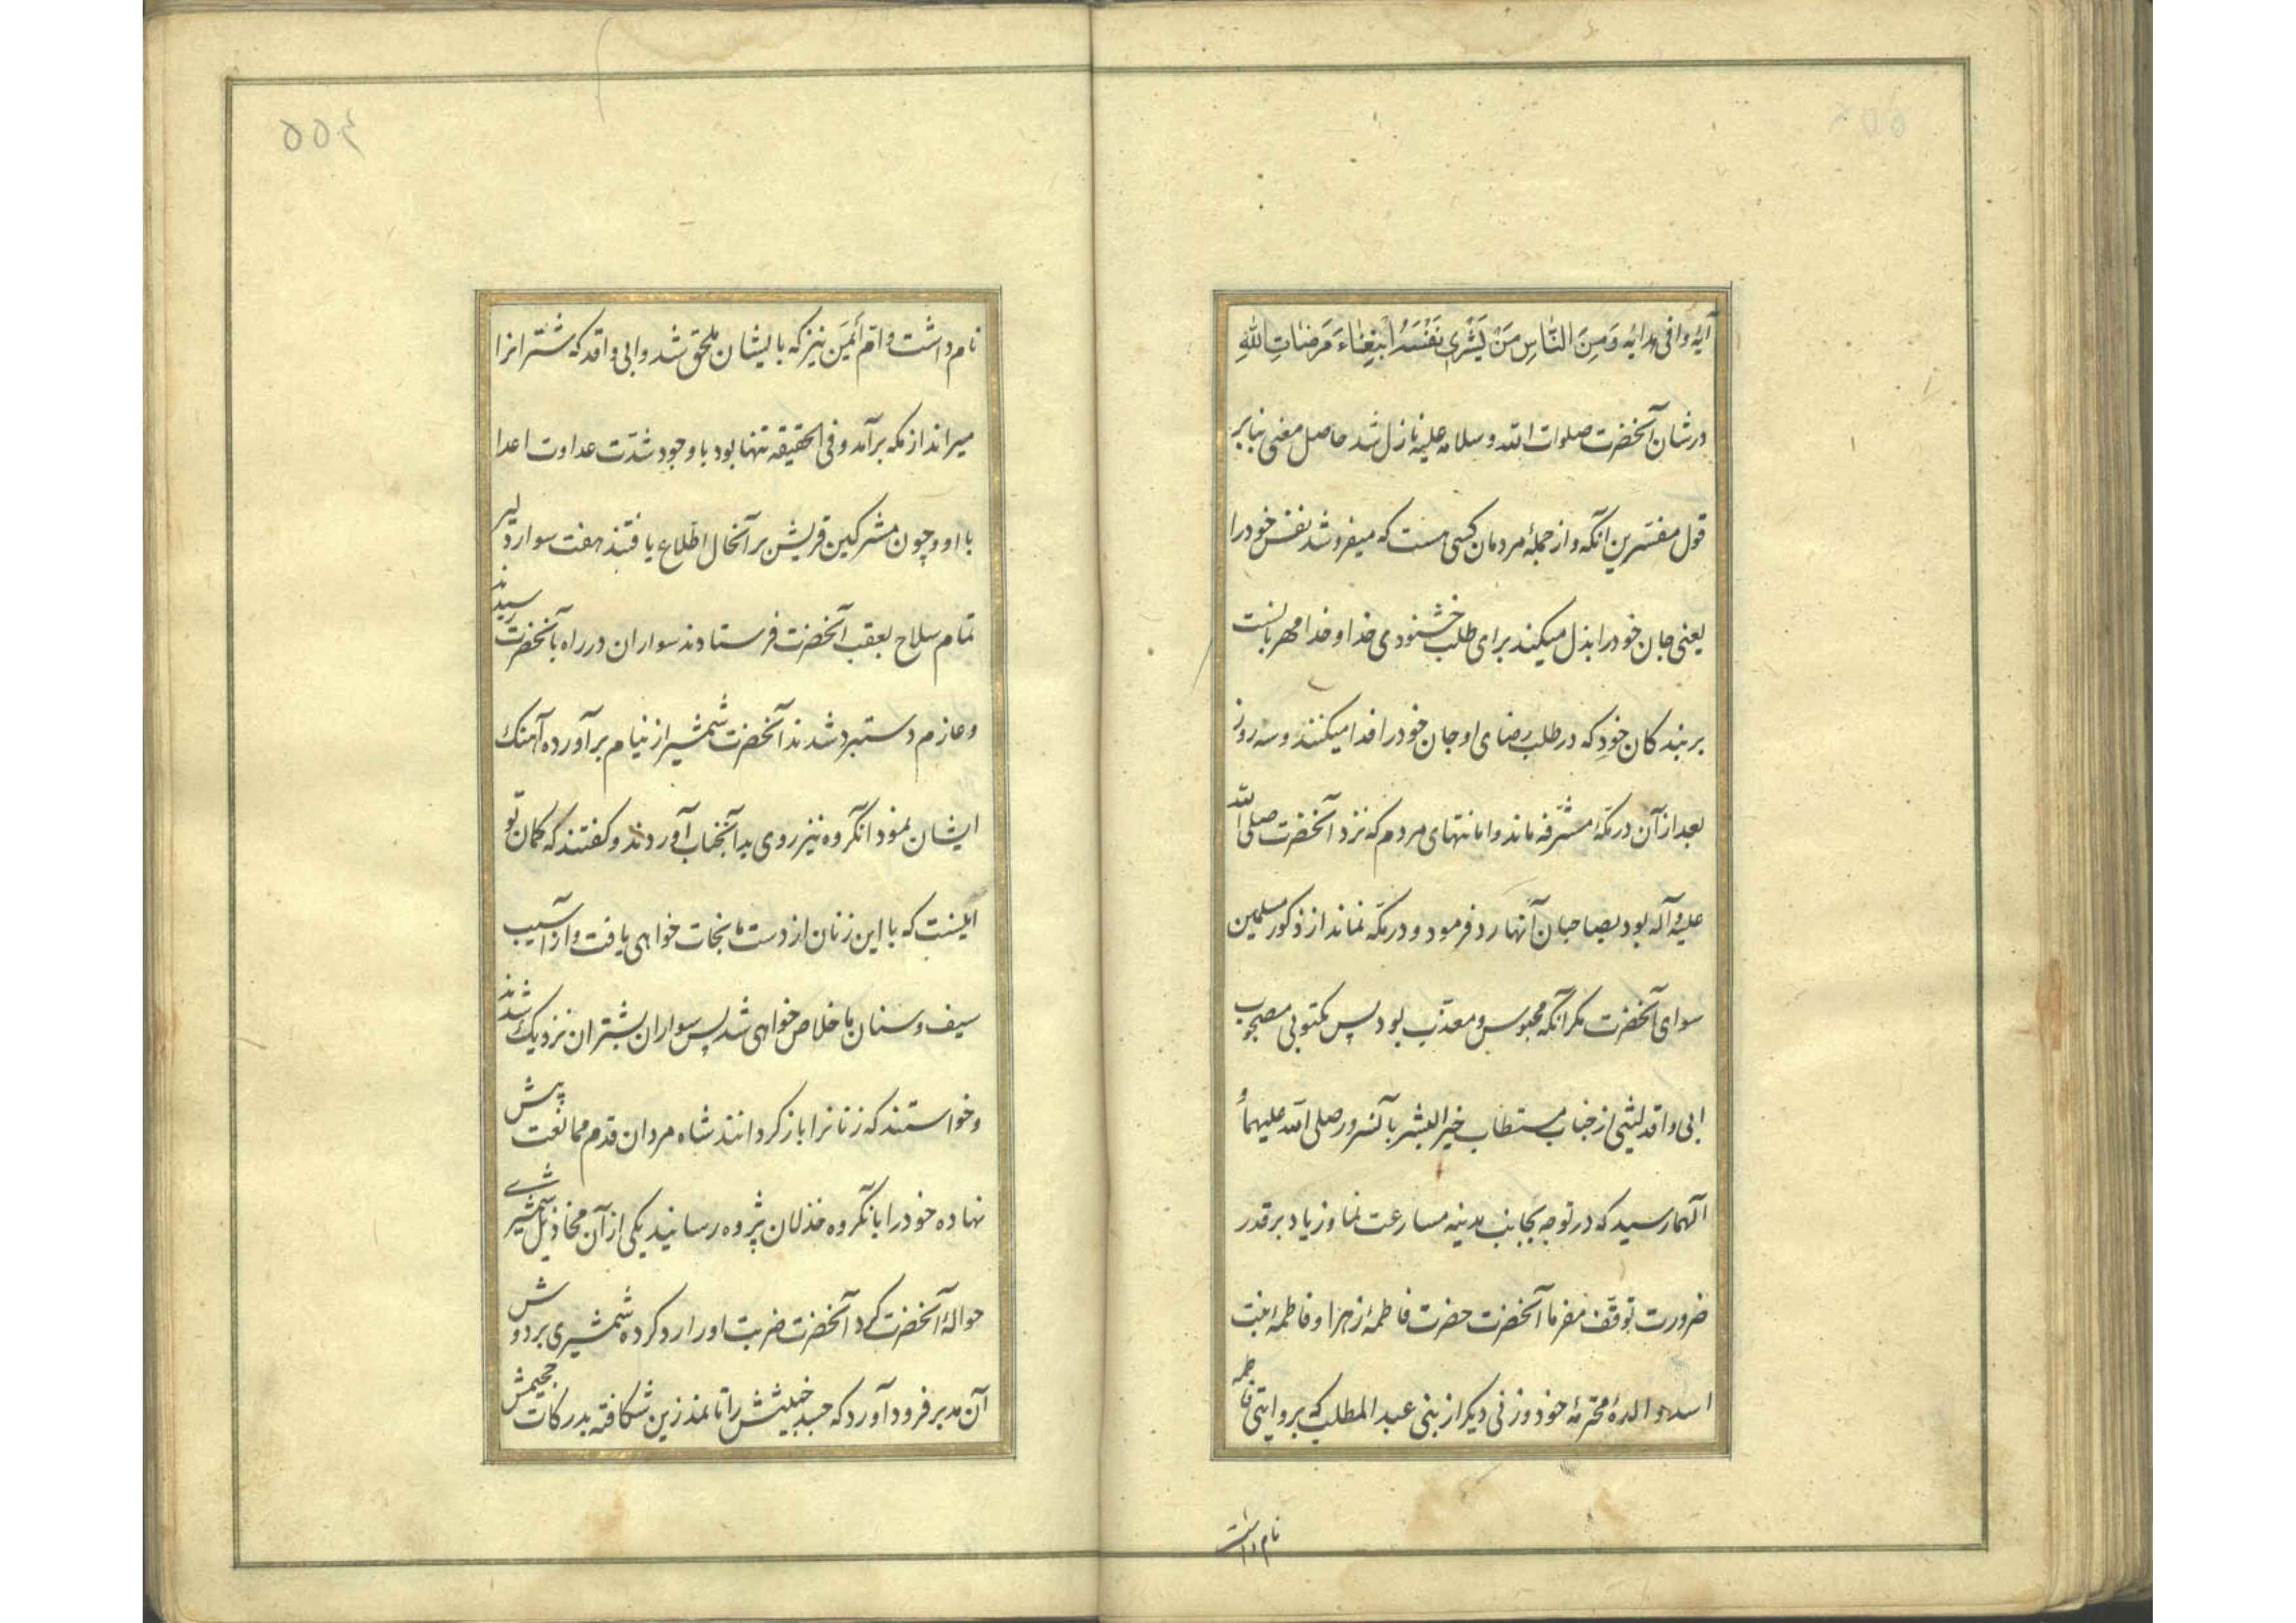 آیهٔ وافی هدایه وَمِنَ النّاسِ مَنْ یَشْری نَفْسَهُ ابْتِغاءَ مَرضاتِ اللهِ
درشان آنحضرت صلوات الله وسلامه علیه نازل شد حاصل معنی بنابر
قول مفسّرین آنکه واز جملهٔ مردمان کسی هست که میفروشد نفس خودرا
یعنی جان خودرا بذل میکند برای طلب خشنودی خدا وخدا مهربانست
بر بندکان خود که در طلب رضای او جان خودرا فدا میکنند وسه روز
بعد از آن در مکّهٔ مشرّفه ماند وامانتهای مردم که نزد آنحضرت صلی الله
علیه وآله بود بصاحبان آنها رد فرمود ودر مکّه نماند از ذکور مسلمین
سوای آنحضرت مکر آنکه محبوس ومعذّب بود پس مکتوبی مصحوب
ابی واقد لیثی از جناب مستطاب خیر البشر بآنسرور صلی الله علیهما و
آلهما رسید که در توجه بجانب مدینه مسارعت نما وزیاد بر قدر
ضرورت توقف مفرما آنحضرت حضرت فاطمهٔ زهرا وفاطمهٔ بنت
اسد والدهٔ محترمهٔ خود وزنی دیکر از بنی عبد المطلب که بروایتی فاطمه
نام داشت
۵۵۴
نام داشت وام أیمَن نیز که بایشان ملحق شد وابی واقد که شترانرا
میراند از مکه برآمد وفی الحقیقه تنها بود باوجود شدّت عداوت اعدا
با او وچون مشرکین قریش بر آنحال اطلاع یافتند هفت سوار دلیر
تمام سلاح بعقب آنحضرت فرستادند سواران در راه بآنحضرت رسیدند
وعازم دستبرد شدند آنحضرت شمشیر از نیام برآورده آهنک
ایشان نمود آنکروه نیز روی بدآنجناب آوردند وکفتند که کمان تو
اینست که با این زنان از دست ما نجات خواهی یافت واز آسیب
سیف وسنان ما خلاص خواهی شد پس سواران بشتران نزدیک شدند
وخواستند که زنانرا بازکردانند شاه مردان قدم ممانعت پیش
نهاده خودرا بآنکروه خذلان پژوه رسانید یکی از آن مخاذیل شمشیری
حوالهٔ آنحضرت کرد آنحضرت ضربت اورا رد کرده شمشیری بر دوش
آن مدبر فرود آورد که جسد خبیثش را تا نمدزین شکافته بدرکات جحیمش